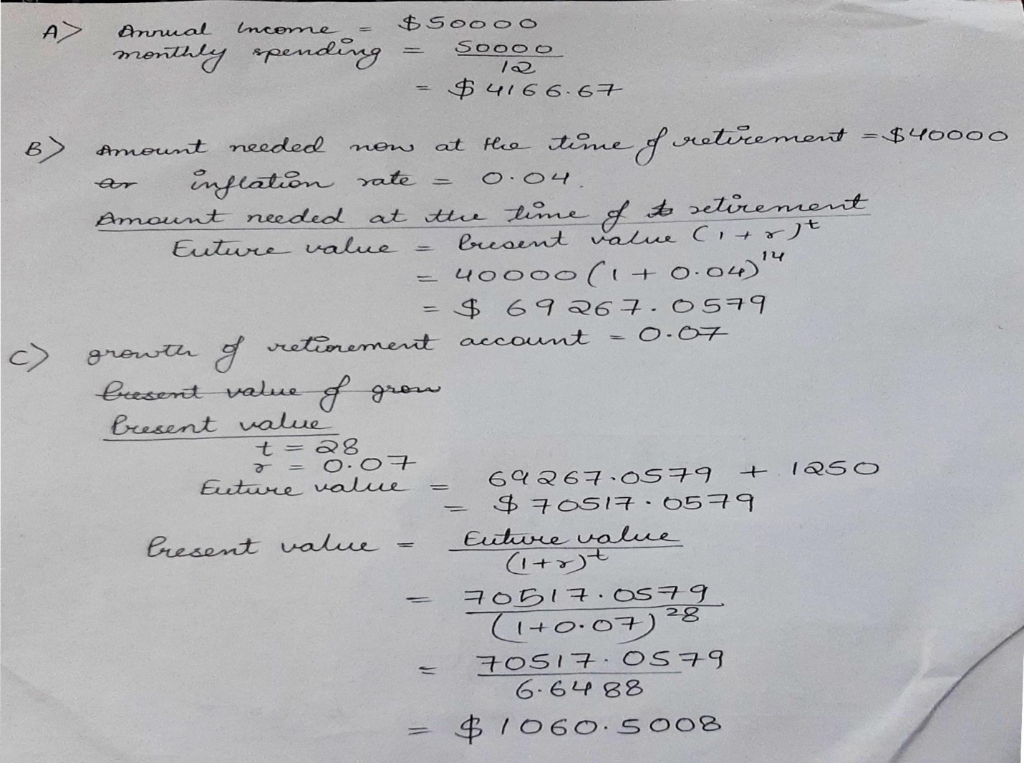 A> Annual Income = $50000
monthly spending = 50000
12
= $4166.67
B> Amount needed now at the time of retirement = $40000
inflation rate = 0.04.
Amount needed at the time of retirement
Future value = Present value (1+r)t
= 40000(1+0.04)14
= $ 69267.0579
C) growth of retirement account = 0.07
Present value of grow
Present value
t = 28
r = 0.07
Future value = 69267.0579 + 1250
= $70517.0579
Present value = Future value
(1+r)t
= 70517.0579
(1+0.07)28
= 70517.0579
6.6488
= $1060.5008